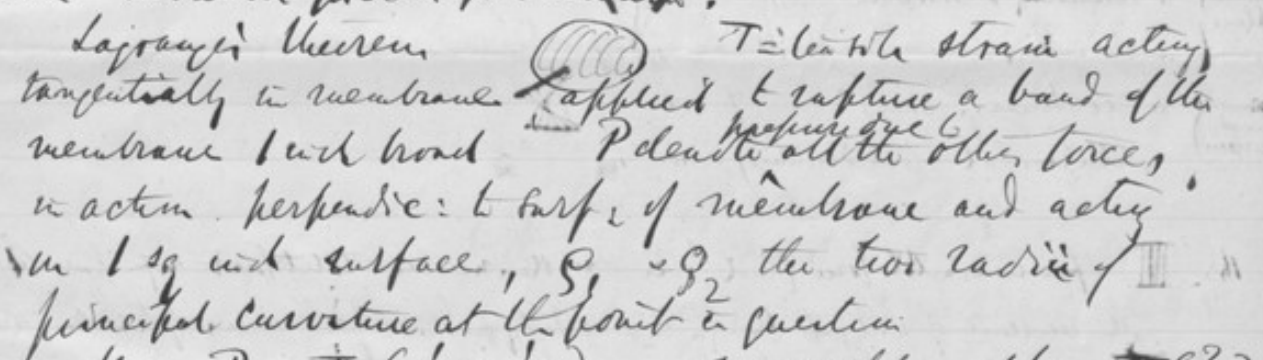 Lagrange's theorem T = tensile strain acting
tangentially in membrane applied to rupture a band of the
membrane 1 inch broad P denote pressure due to all the other forces,
in action perpendic: to surf. of membrane and acting
on 1 sq inch surface, ρ1 & ρ2 the two radii of
principal curvature at the point in question